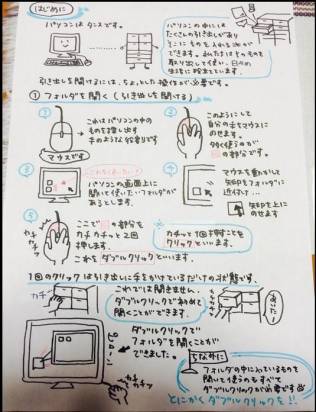 はじめに
パソコンはタンスです。
パソコンの中には
たくさんの引き出しがあり
そこにものを入れる事が
できます。みんなはそのものを
取り出して使い、日々の
引き出しを開けるには、ちょっとした操作が必要です。
① フォルダを開く (引き出しを開ける)
①
これはパソコンの中の
ものを指し示す
手のような役割です
マウスです
②
このようにして
自分の手をマウスに
のせます。
の部分です。
③
パソコンの画面上に
開いて使いたいフォルダが
あるとします。
④
マウスを動かして
矢印をフォルダに
近付け…
矢印を上に
のせます
⑤
カチッ
カチッ
ここで の部分を
カチカチッと2回
押します。
これをダブルクリックといいます。
カチッと1回押すことを
クリックといいます。
1回のクリックは引き出しに手をかけているだけの状態です。
カチッ
これでは開きません。
ダブルクリックで初めて
開くことができます。
あいた!
ダブルクリックで
フォルダを開くことが
できました。
カチ
カチッ
ちなみに
フォルダの中に入っているものを
開いて使うのもすべて
ダブルクリックが必要です
とにかくダブルクリックを!!